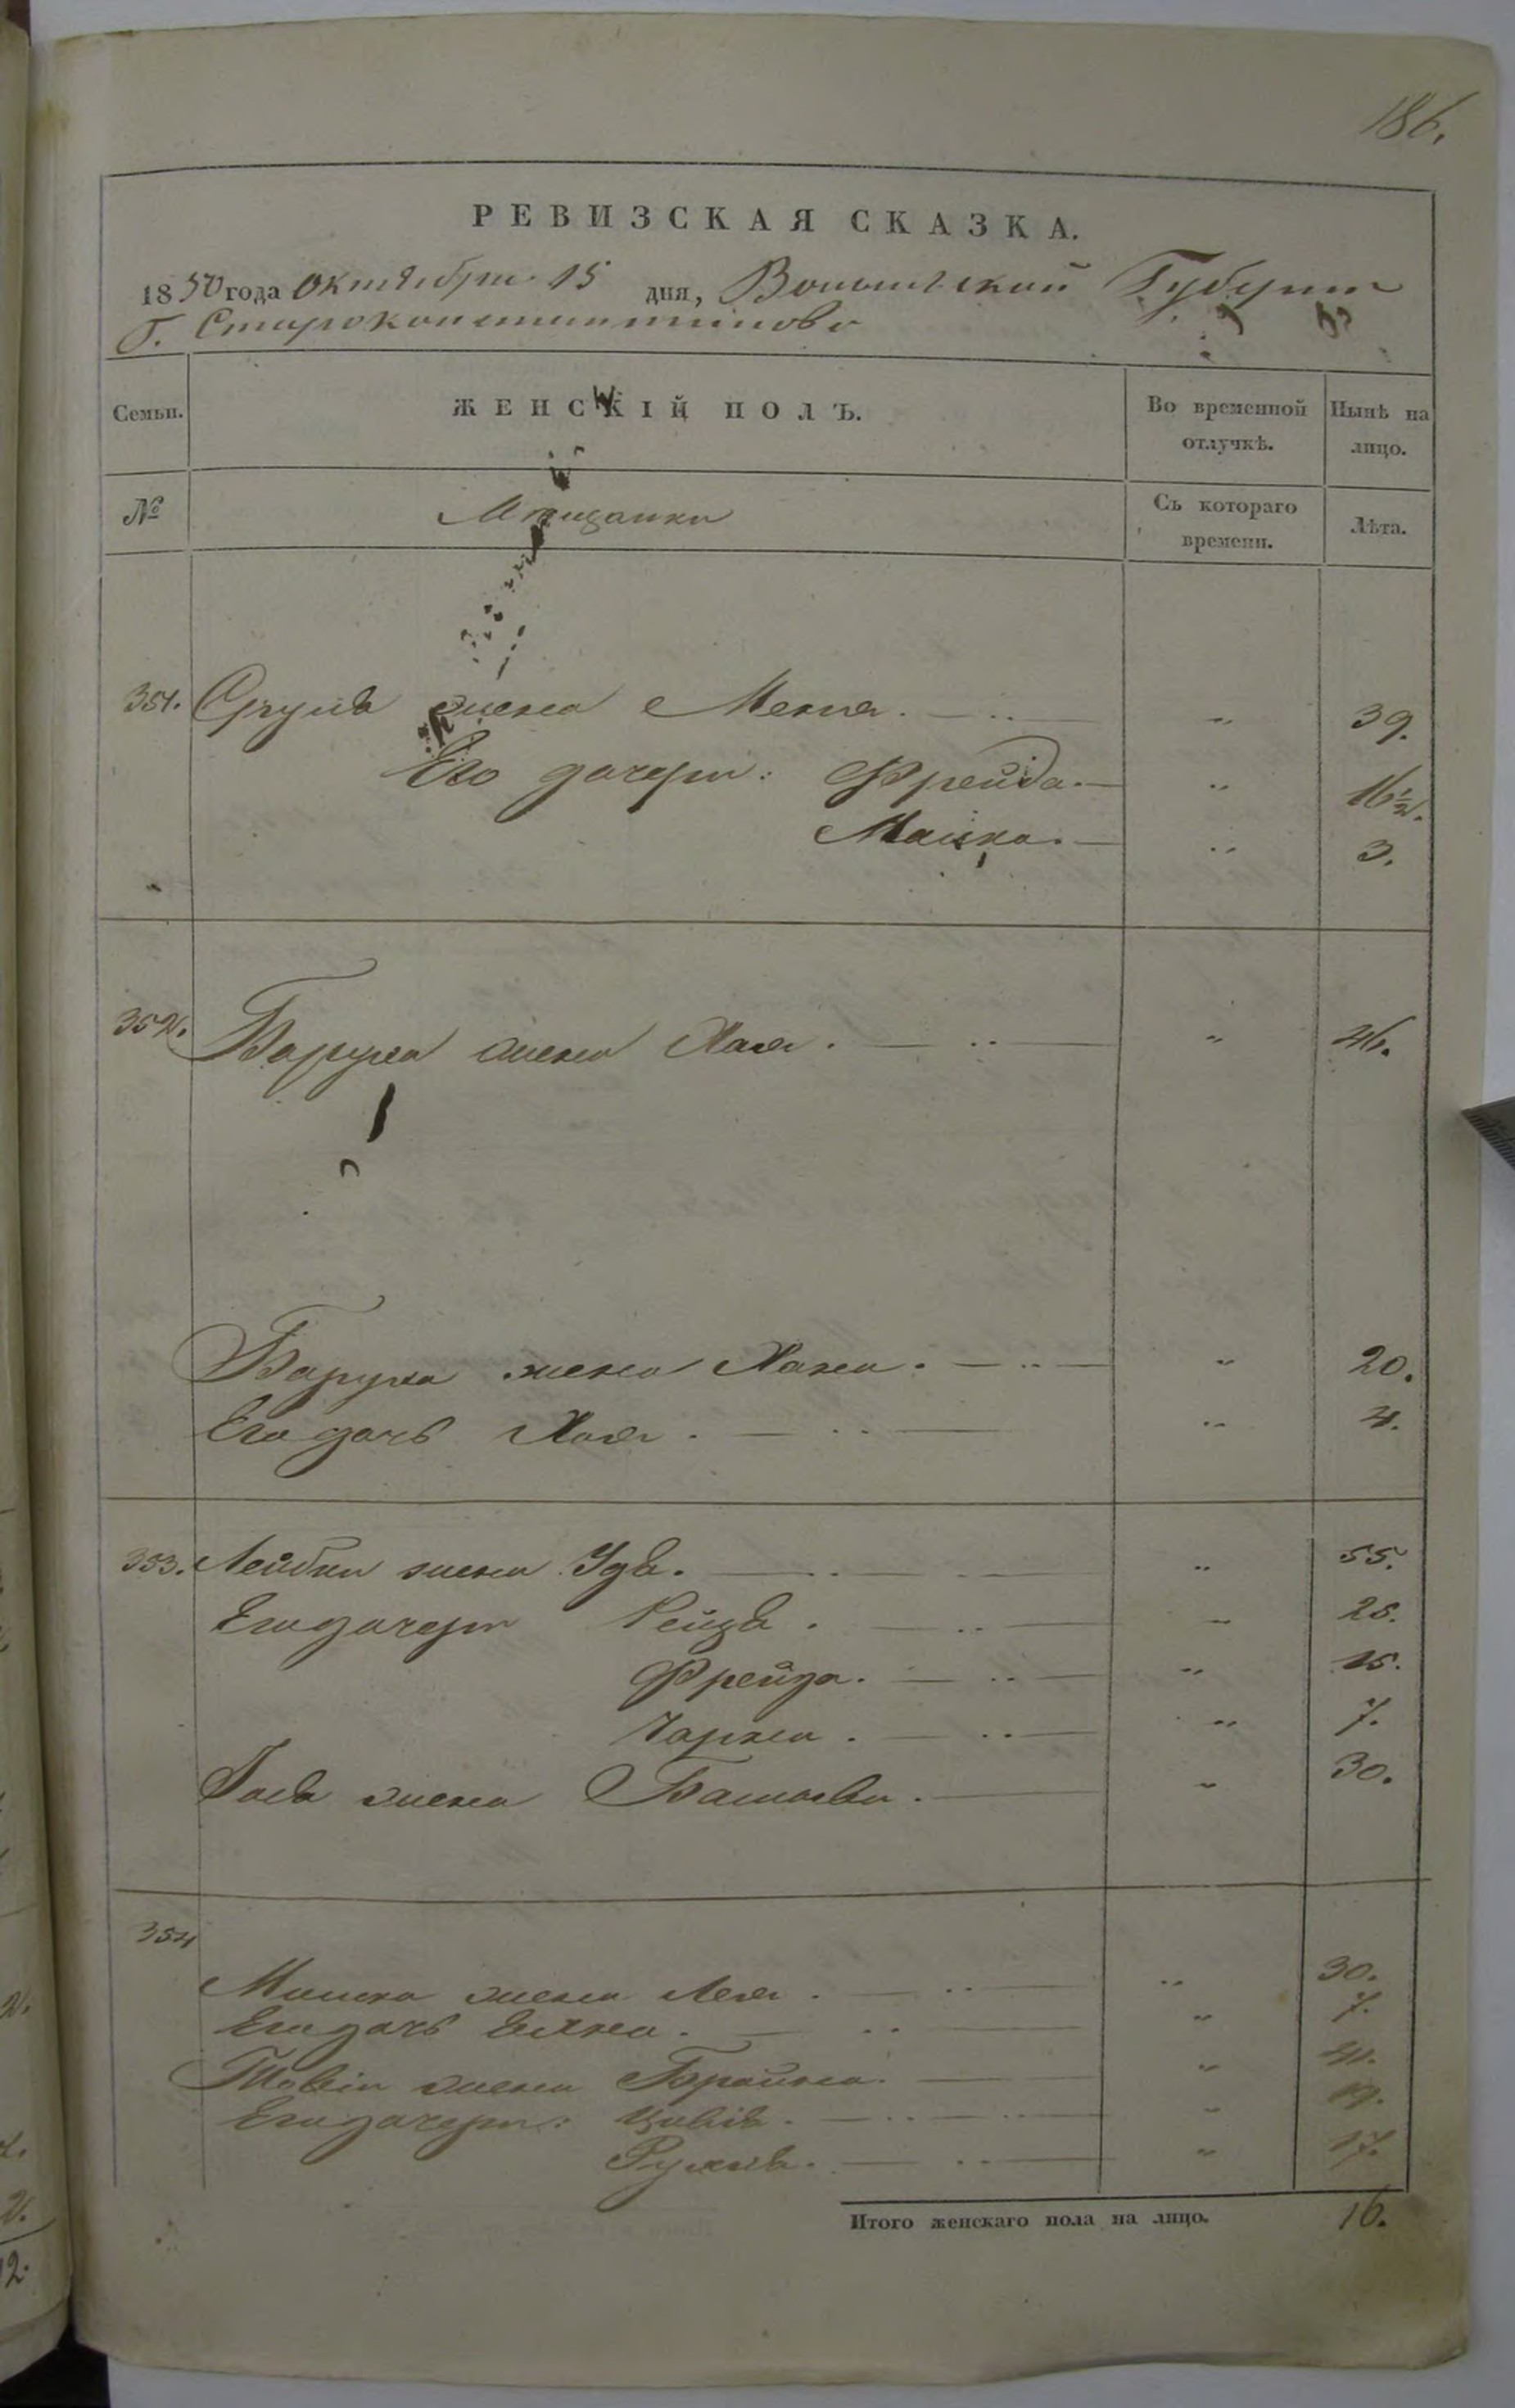 186.
РЕВИЗСКАЯ СКАЗКА.
1850 года октября 15 дня, Волынской Губернии
Г. Староконстантинова
Семьи. ЖЕНСКІЙ ПОЛЪ. Во временной отлучкѣ. Нынѣ на лицо.
№ Мещанки Съ котораго времени. Лѣта.
351. Сруля жена Меня. „ 39.
Его дочери: Фрейда. „ 16½.
Малка. „ 3.
352. Баруха жена Хая. „ 46.
Баруха жена Хана. „ 20.
Его дочь Хая. „ 4.
353. Лейбы жена Удя. „ 55.
Его дочери Рейзя. „ 25.
Фрейда. „ 15.
Чарна. „ 7.
жена Башева. „ 30.
354
Мошка жена Лея. „ 30.
Его дочь „ 7.
Товіи жена Брайна. „ 41.
Его дочери: Цивія. „ 19.
Рухля. „ 17.
Итого женскаго пола на лицо. 16.